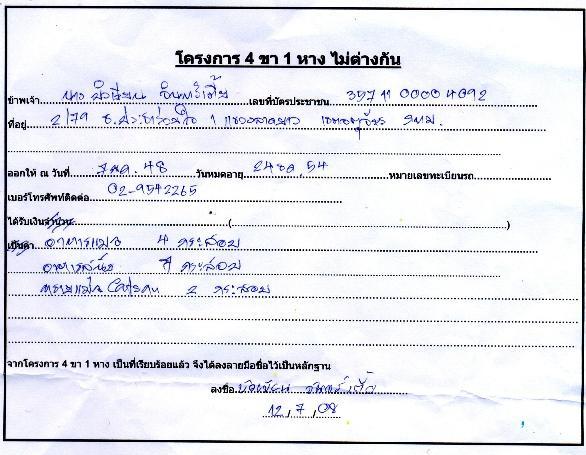 โครงการ 4 ขา 1 หาง ไม่ต่างกัน
ข้าพเจ้า นาง เลขที่บัตรประชาชน 35711 00004092
ที่อยู่ 2/79 ซ.ประชาร่วมใจ 1 แขวงลาดยาว เขตจตุจักร กทม.
ออกให้ ณ วันที่ 48 วันหมดอายุ 24 54 หมายเลขทะเบียนรถ
เบอร์โทรศัพท์ติดต่อ 02-9542265
ได้รับเงินจำนวน ( )
เป็นค่า อาหารแมว 4 กระสอบ
กระสอบ
ทรายแมว Catsan 2 กระสอบ
จากโครงการ 4 ขา 1 หาง เป็นที่เรียบร้อยแล้ว จึงได้ลงลายมือชื่อไว้เป็นหลักฐาน
ลงชื่อ
12, 7, 08